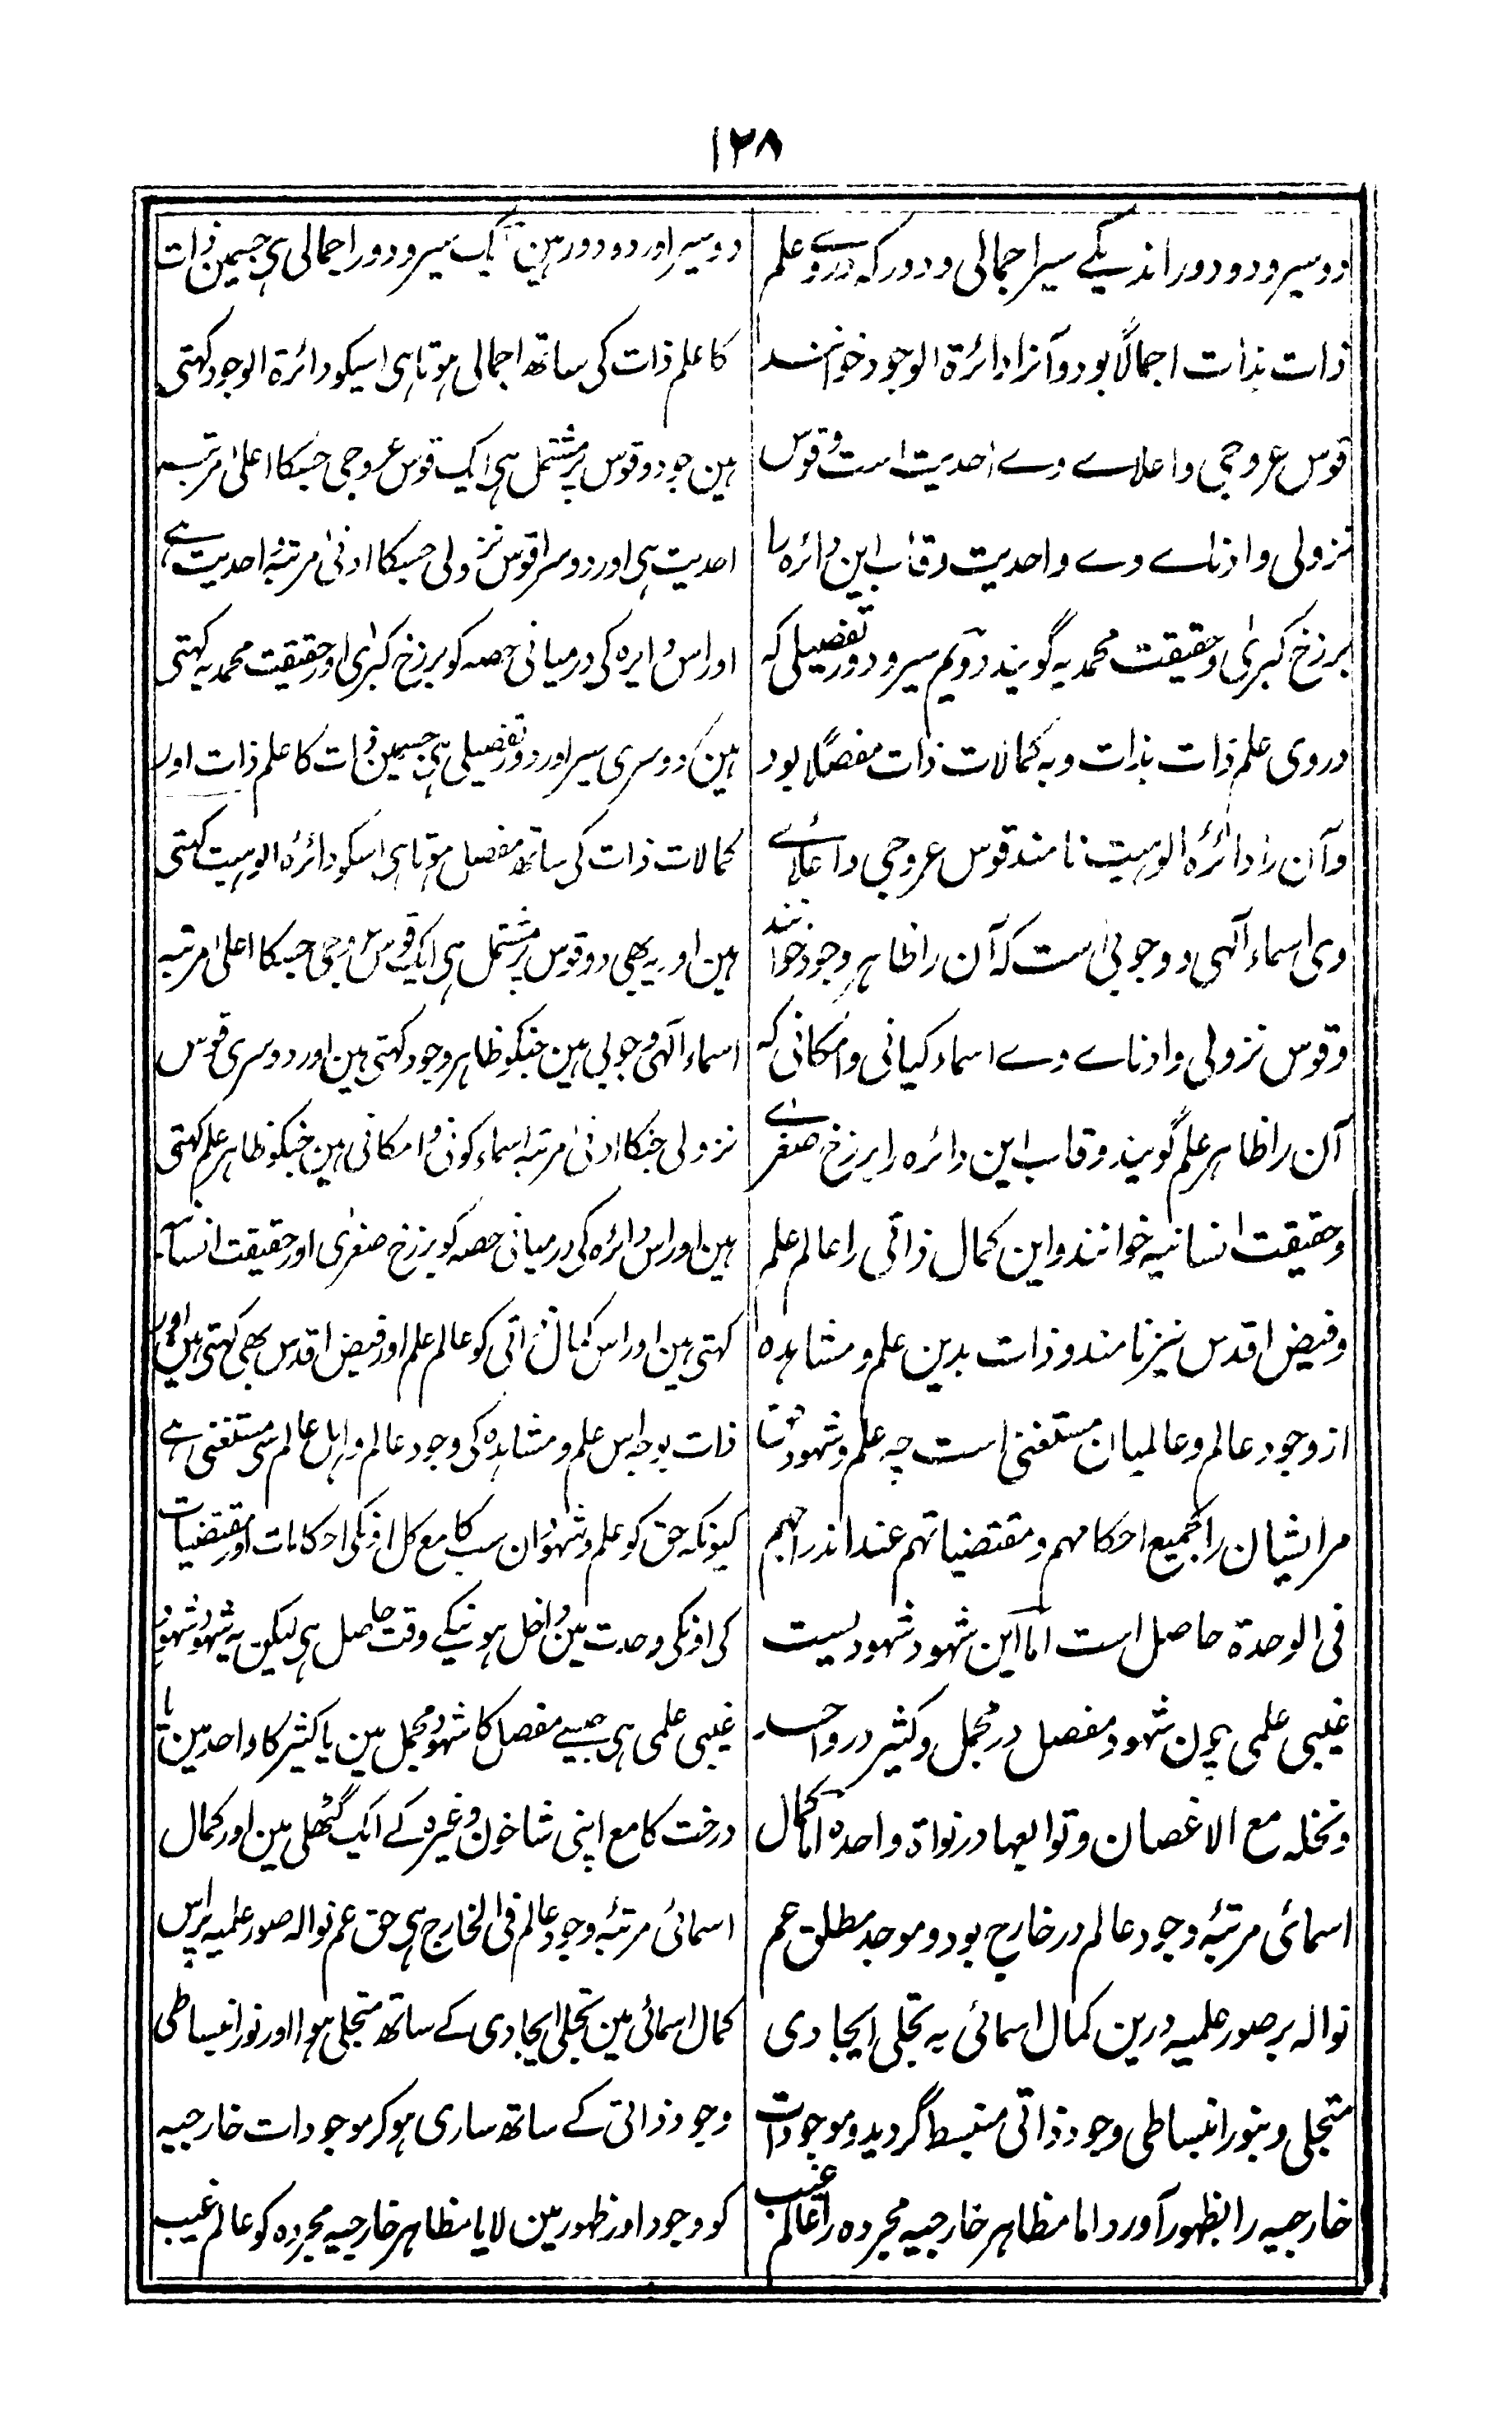 ۱۲۸
دو سیر و دو دور اند یکے سیر اجمالی و دور که در وے علم
ذات بذات اجمالًا بود و آنرا دائرة الوجود خوانند
قوس عروجی و اعلاے وے احدیت است و قوس
نزولی و ادناے وے واحدیت و قاب این دائره را
برزخ کبریٰ و حقیقت محمدیه گویند دویم سیر و دور تفصیلی که
در وی علم ذات بذات و به کمالات ذات مفصلًا بود
و آن را دائرۂ الوہیت نامند قوس عروجی و اعلاے
وی اسماء آلهی و وجوبی است که آن را ظاہر وجود خوانند
و قوس نزولی و ادناے وے اسماء کیانی و امکانی که
آن را ظاہر علم گویند و قاب این دائره را برزخ صغرےٰ
و حقیقت انسانیه خوانند و این کمال ذاتی را عالم علم
و فیض اقدس نیز نامند و ذات بدین علم و مشاہده
از وجود عالم و عالمیان مستغنی است چه علم و شہود حق
مر ایشان را بجمیع احکامهم و مقتضیاتهم عند اندراجهم
فی الوحدة حاصل است اما این شہود شہودیست
غیبی علمی چون شہود مفصل در مجمل و کثیر در واحد
و نخله مع الاغصان و توابعها در نواة واحده اما کمال
اسمائی مرتبۂ وجود عالم در خارج بود و موجد مطلق عم
نواله بر صور علمیه درین کمال اسمائی به تجلی ایجادی
متجلی و بنور انبساطی وجود ذاتی منبسط گردید و موجودات
خارجیه را بظہور آورد اما مظاہر خارجیه مجرده را عالم غیب
دو سیر اور دو دور ہین ایک سیر و دور اجمالی ہی جسمین ذات
کا علم ذات کی ساتھ اجمالی ہوتا ہی اسیکو دائرة الوجود کہتی
ہین جو دو قوس پر مشتمل ہی ایک قوس عروجی جسکا اعلیٰ مرتبہ
احدیت ہی اور دوسرا قوس نزولی جسکا ادنیٰ مرتبۂ احدیت ہے
اور اس دایره کی درمیانی حصہ کو برزخ کبریٰ اور حقیقت محمدیه کہتی
ہین دوسری سیر اور دور تفصیلی ہی جسمین ذات کا علم ذات اور
کمالات ذات کی ساتھ مفصل ہوتا ہی اسکو دائرہ الوہیت کہتی
ہین اور یہ بھی دو قوس پر مشتمل ہی ایک قوس عروجی جسکا اعلیٰ مرتبہ
اسماء آلهی وجوبی ہین جنکو ظاہر وجود کہتی ہین اور دوسری قوس
نزولی جنکا ادنیٰ مرتبہ اسماء کونی و امکانی ہین جنکو ظاہر علم کہتی
ہین اور اس دائرہ کی درمیانی حصہ کو برزخ صغریٰ اور حقیقت انسانیہ
کہتی ہین اور اس کمال ذاتی کو عالم علم اور فیض اقدس بھی کہتی ہین اور
ذات بوجہ اس علم و مشاہدہ کی وجود عالم و اہل عالم سی مستغنی ہے
کیونکہ حق کو علم و شہود ان سب کا مع کل اونکی احکامات اور مقتضیات
کی اونکی وحدت مین داخل ہونیکے وقت حاصل ہی لیکن یہ شہود شہود
غیبی علمی ہی جیسے مفصل کا شہود مجمل مین یا کثیر کا واحد مین یا
درخت کا مع اپنی شاخون وغیرہ کے ایک گٹھلی مین اور کمال
اسمائی مرتبۂ وجود عالم فی الخارج ہی حق عم نواله صور علمیه پر اس
کمال اسمائی مین تجلی ایجادی کے ساتھ متجلی ہوا اور نور انبساطی
وجود ذاتی کے ساتھ ساری ہو کر موجودات خارجیه
کو وجود اور ظہور مین لایا مظاہر خارجیه مجردہ کو عالم غیب